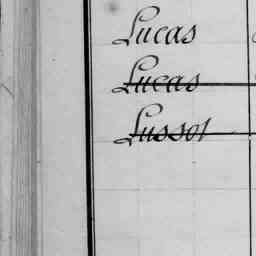 Lucas
Lucas
Lussot